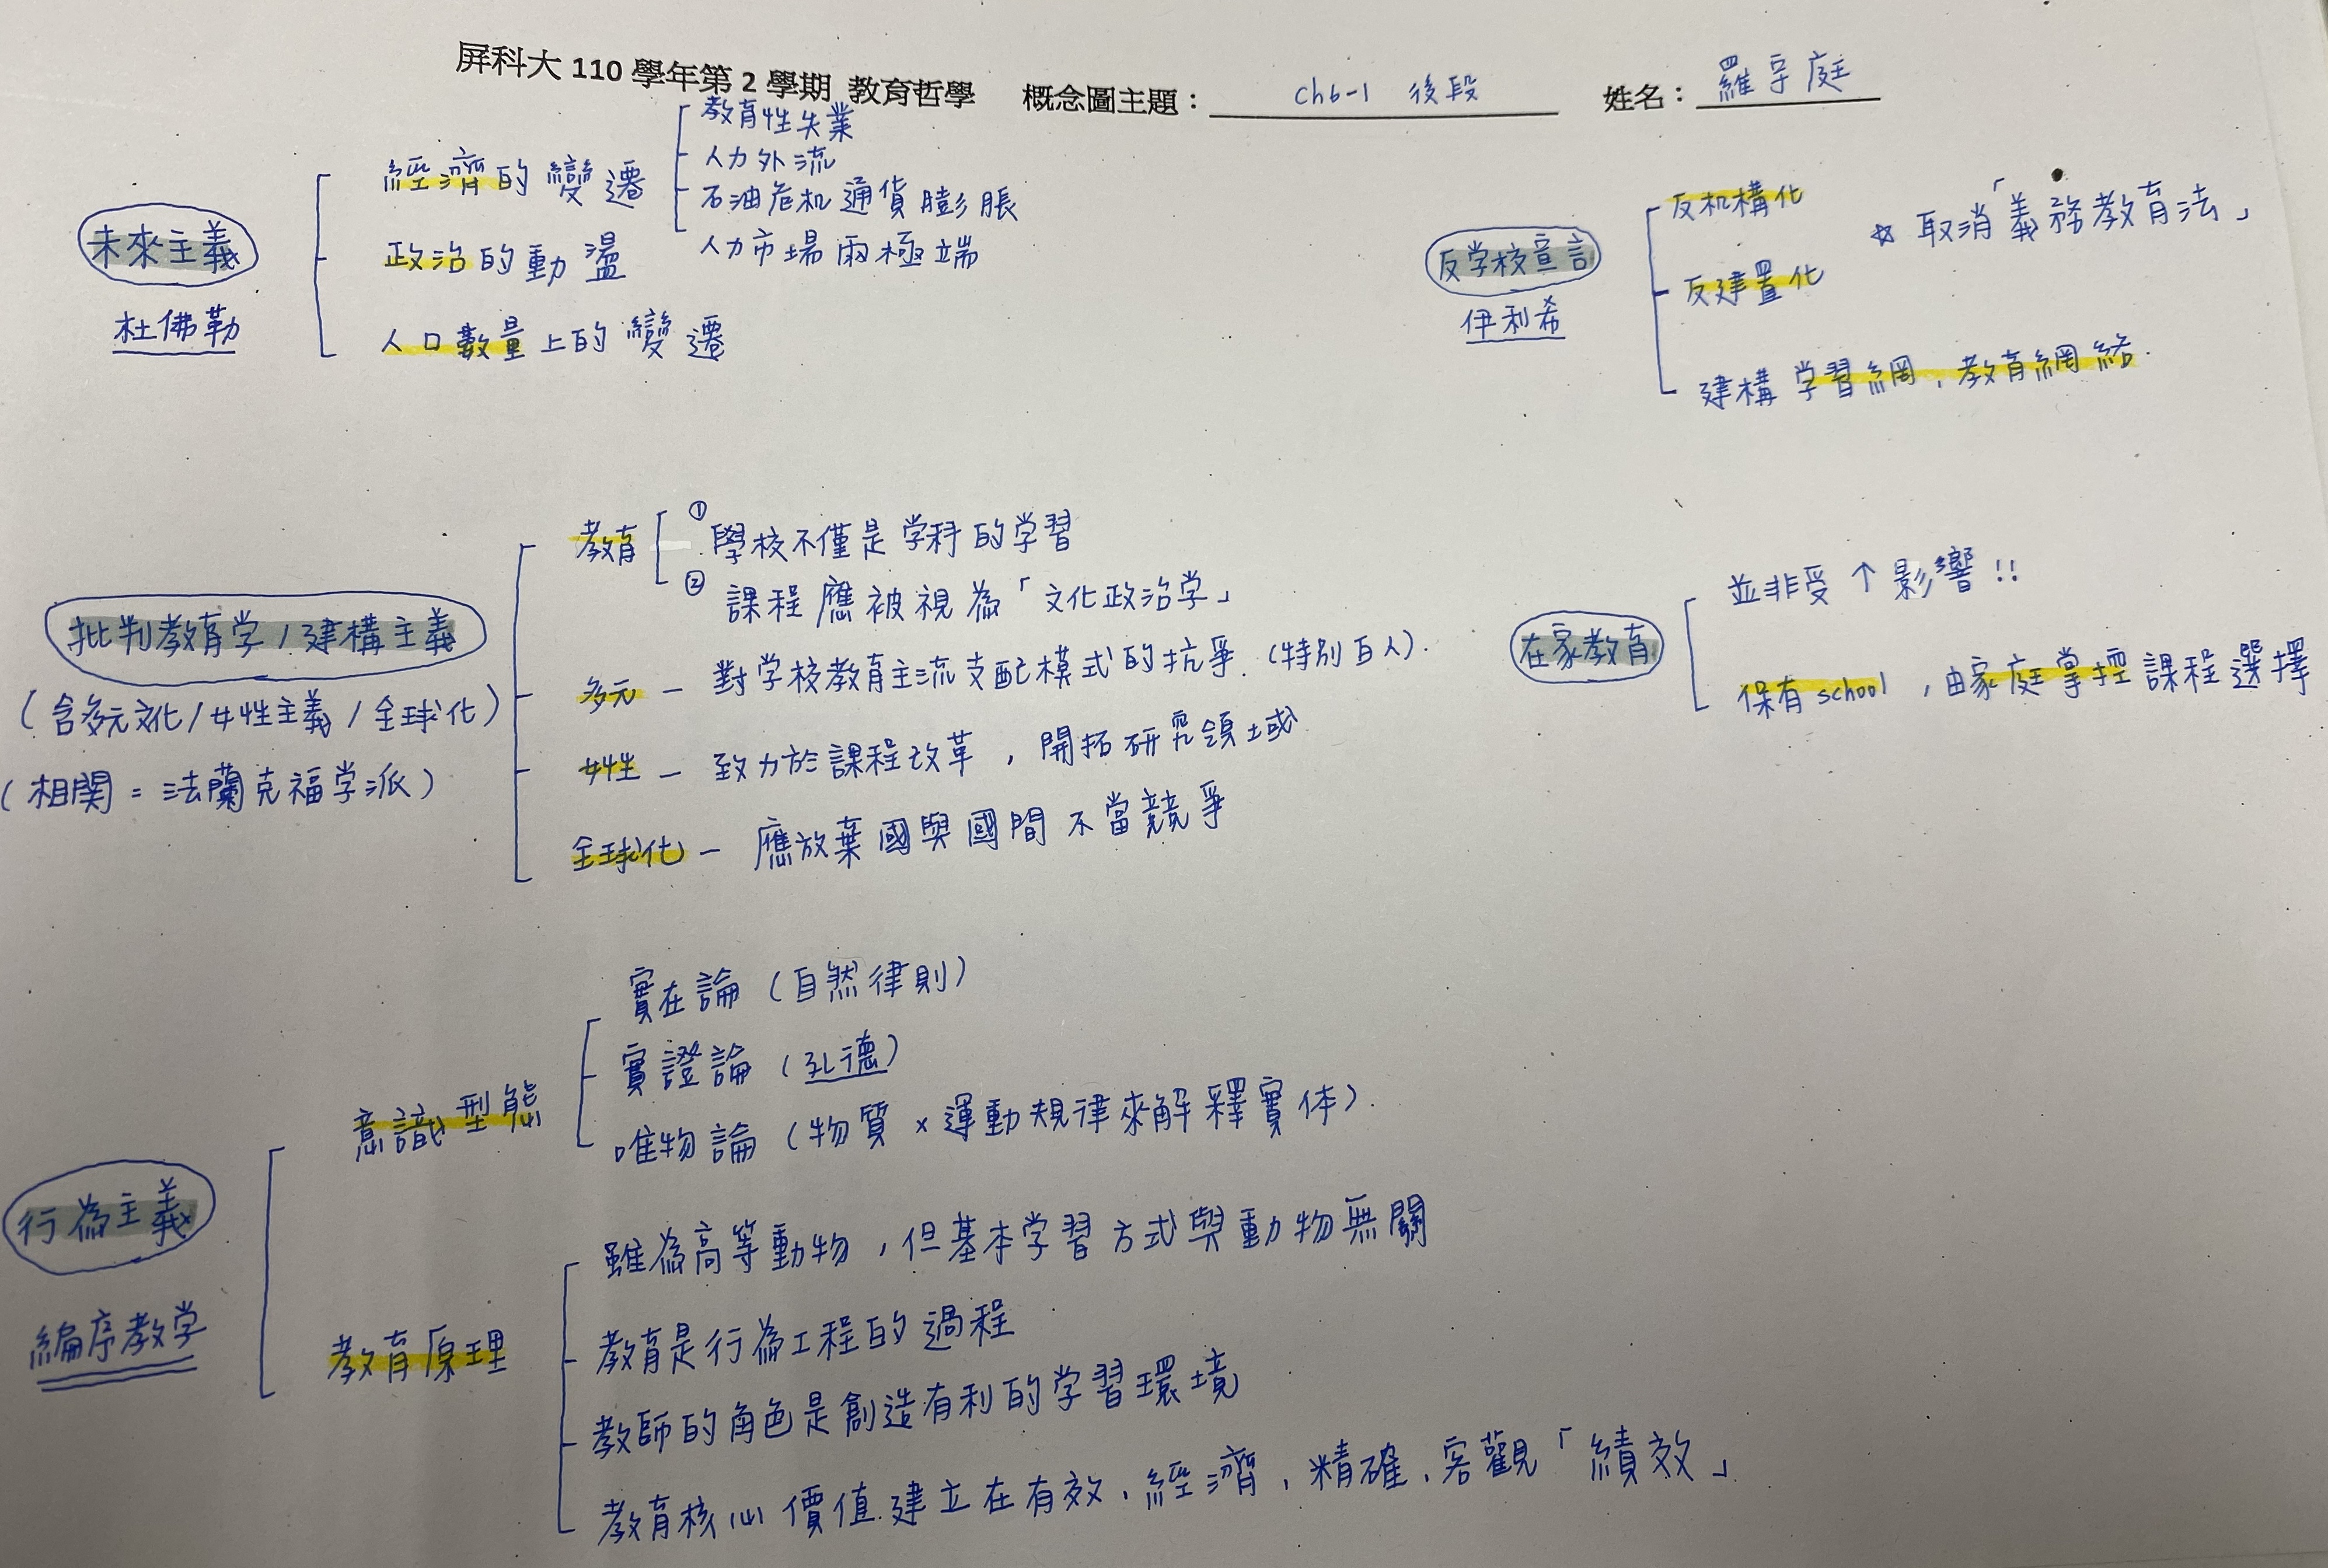 屏科大 110 學年第 2 學期 教育哲學 概念圖主題： ch6-1 後段 姓名： 羅孚庭
未來主義
杜佛勒
經濟的變遷
教育性失業
人力外流
石油危机通貨膨脹
人力市場兩極端
政治的動盪
人口數量上的變遷
反学校宣言
伊利希
反机構化
☆ 取消「義務教育法」
反建置化
建構学習網、教育網絡.
批判教育学/建構主義
(含多元文化/女性主義/全球化)
(相関=法蘭克福学派)
教育
① 學校不僅是学科的学習
② 課程應被視為「文化政治学」
多元 — 對学校教育主流支配模式的抗爭.(特別白人).
女性 — 致力於課程改革，開拓研究領域.
全球化 — 應放棄國與國間不當競爭
在家教育
並非受↑影響!!
保有school，由家庭掌控課程選擇
行為主義
編序教学
意識型態
實在論(自然律則)
實證論(孔德)
唯物論(物質×運動規律來解釋實体).
教育原理
雖為高等動物，但基本学習方式與動物無關
教育是行為工程的過程
教師的角色是創造有利的学習環境
教育核心價值建立在有效、經濟，精確、客觀「績效」